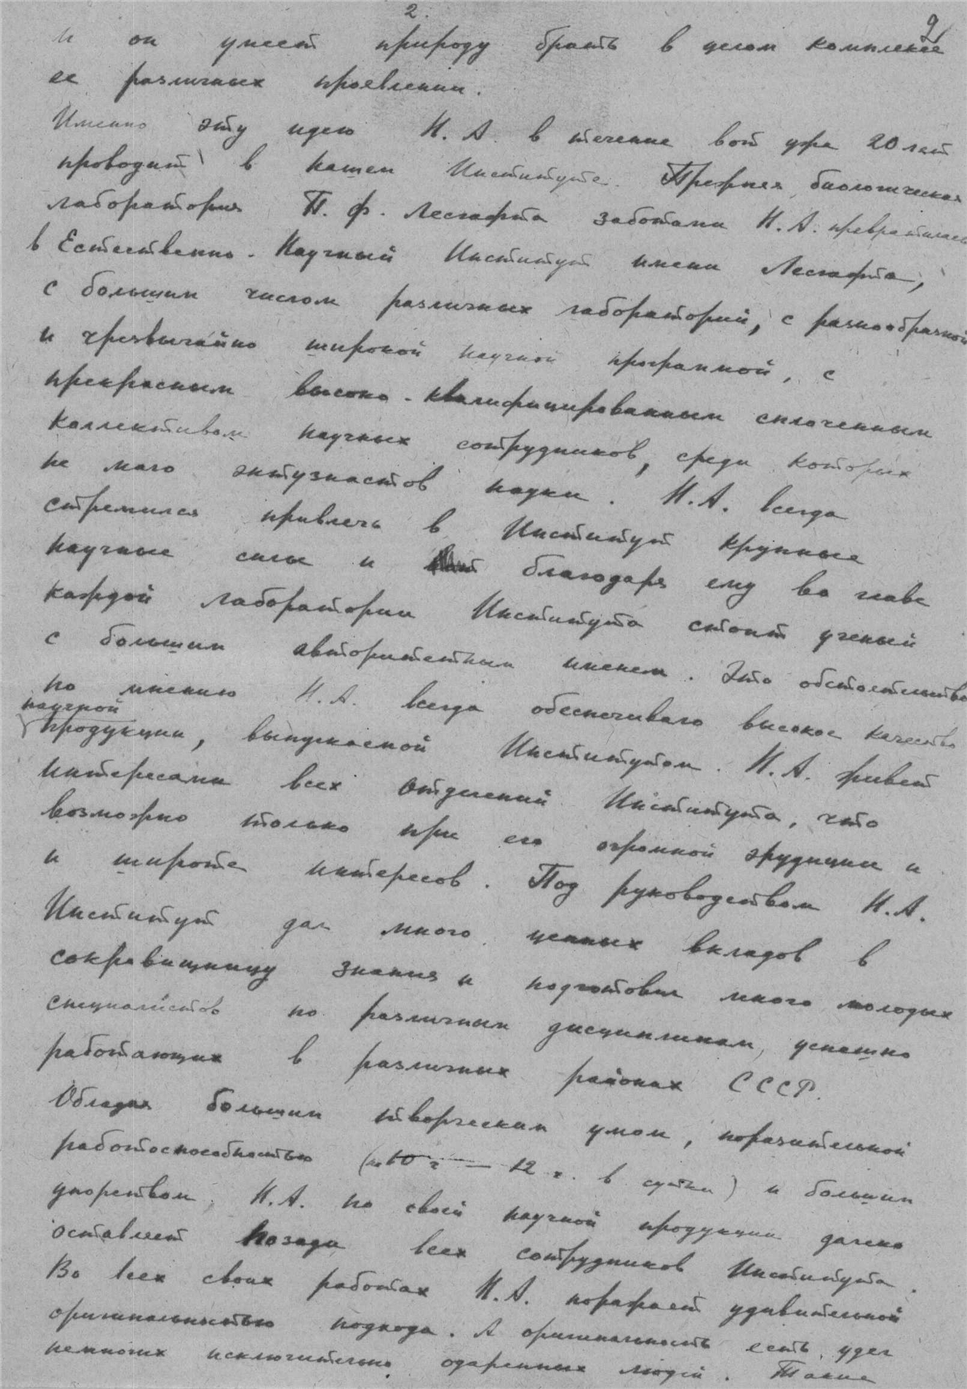 2.
9
И он умеет природу брать в целом комплексе
ее различных проявлений.
Именно эту идею Н. А. в течение вот уже 20 лет
проводит в нашем Институте. Прежняя биологическая
лаборатория П. Ф. Лесгафта заботами Н. А. превратилась
в Естественно-Научный Институт имени Лесгафта,
с большим числом различных лабораторий, с разнообразной
и чрезвычайно широкой научной программой, с
прекрасным высоко-квалифицированным сплоченным
коллективом научных сотрудников, среди которых
не мало энтузиастов науки. Н. А. всегда
стремился привлечь в Институт крупные
научные силы и благодаря ему во главе
каждой лаборатории Института стоит ученый
с большим авторитетным именем. Это обстоятельство
по мнению Н. А. всегда обеспечивало высокое качество
научной
продукции, выпускаемой Институтом. Н. А. живет
интересами всех отделений Института, что
возможно только при его огромной эрудиции и
и широте интересов. Под руководством Н. А.
Институт дал много ценных вкладов в
сокровищницу знания и подготовил много молодых
специалистов по различным дисциплинам, успешно
работающих в различных районах СССР.
Обладая большим творческим умом, поразительной
работоспособностью (по 10 ч — 12 ч. в сутки) и большим
упорством, Н. А. по своей научной продукции далеко
оставляет позади всех сотрудников Института.
Во всех своих работах Н. А. поражает удивительной
оригинальностью подхода. А оригинальность есть удел
немногих исключительно одаренных людей. Такие